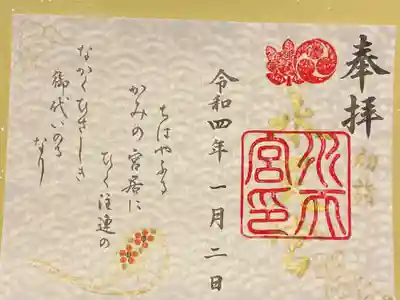 奉拝
初詣
水天宮
水天宮印
令和四年 一月二日
ちはやふる
かみの宮居に
ひく注連の
なかくひさしき
御代いのる
なり